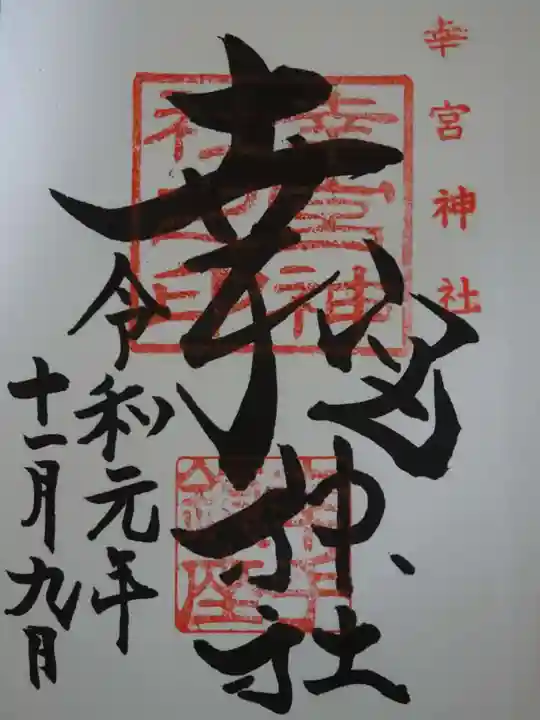 幸宮神社
幸宮神社
幸宮神社之印
令和元年
十一月九日